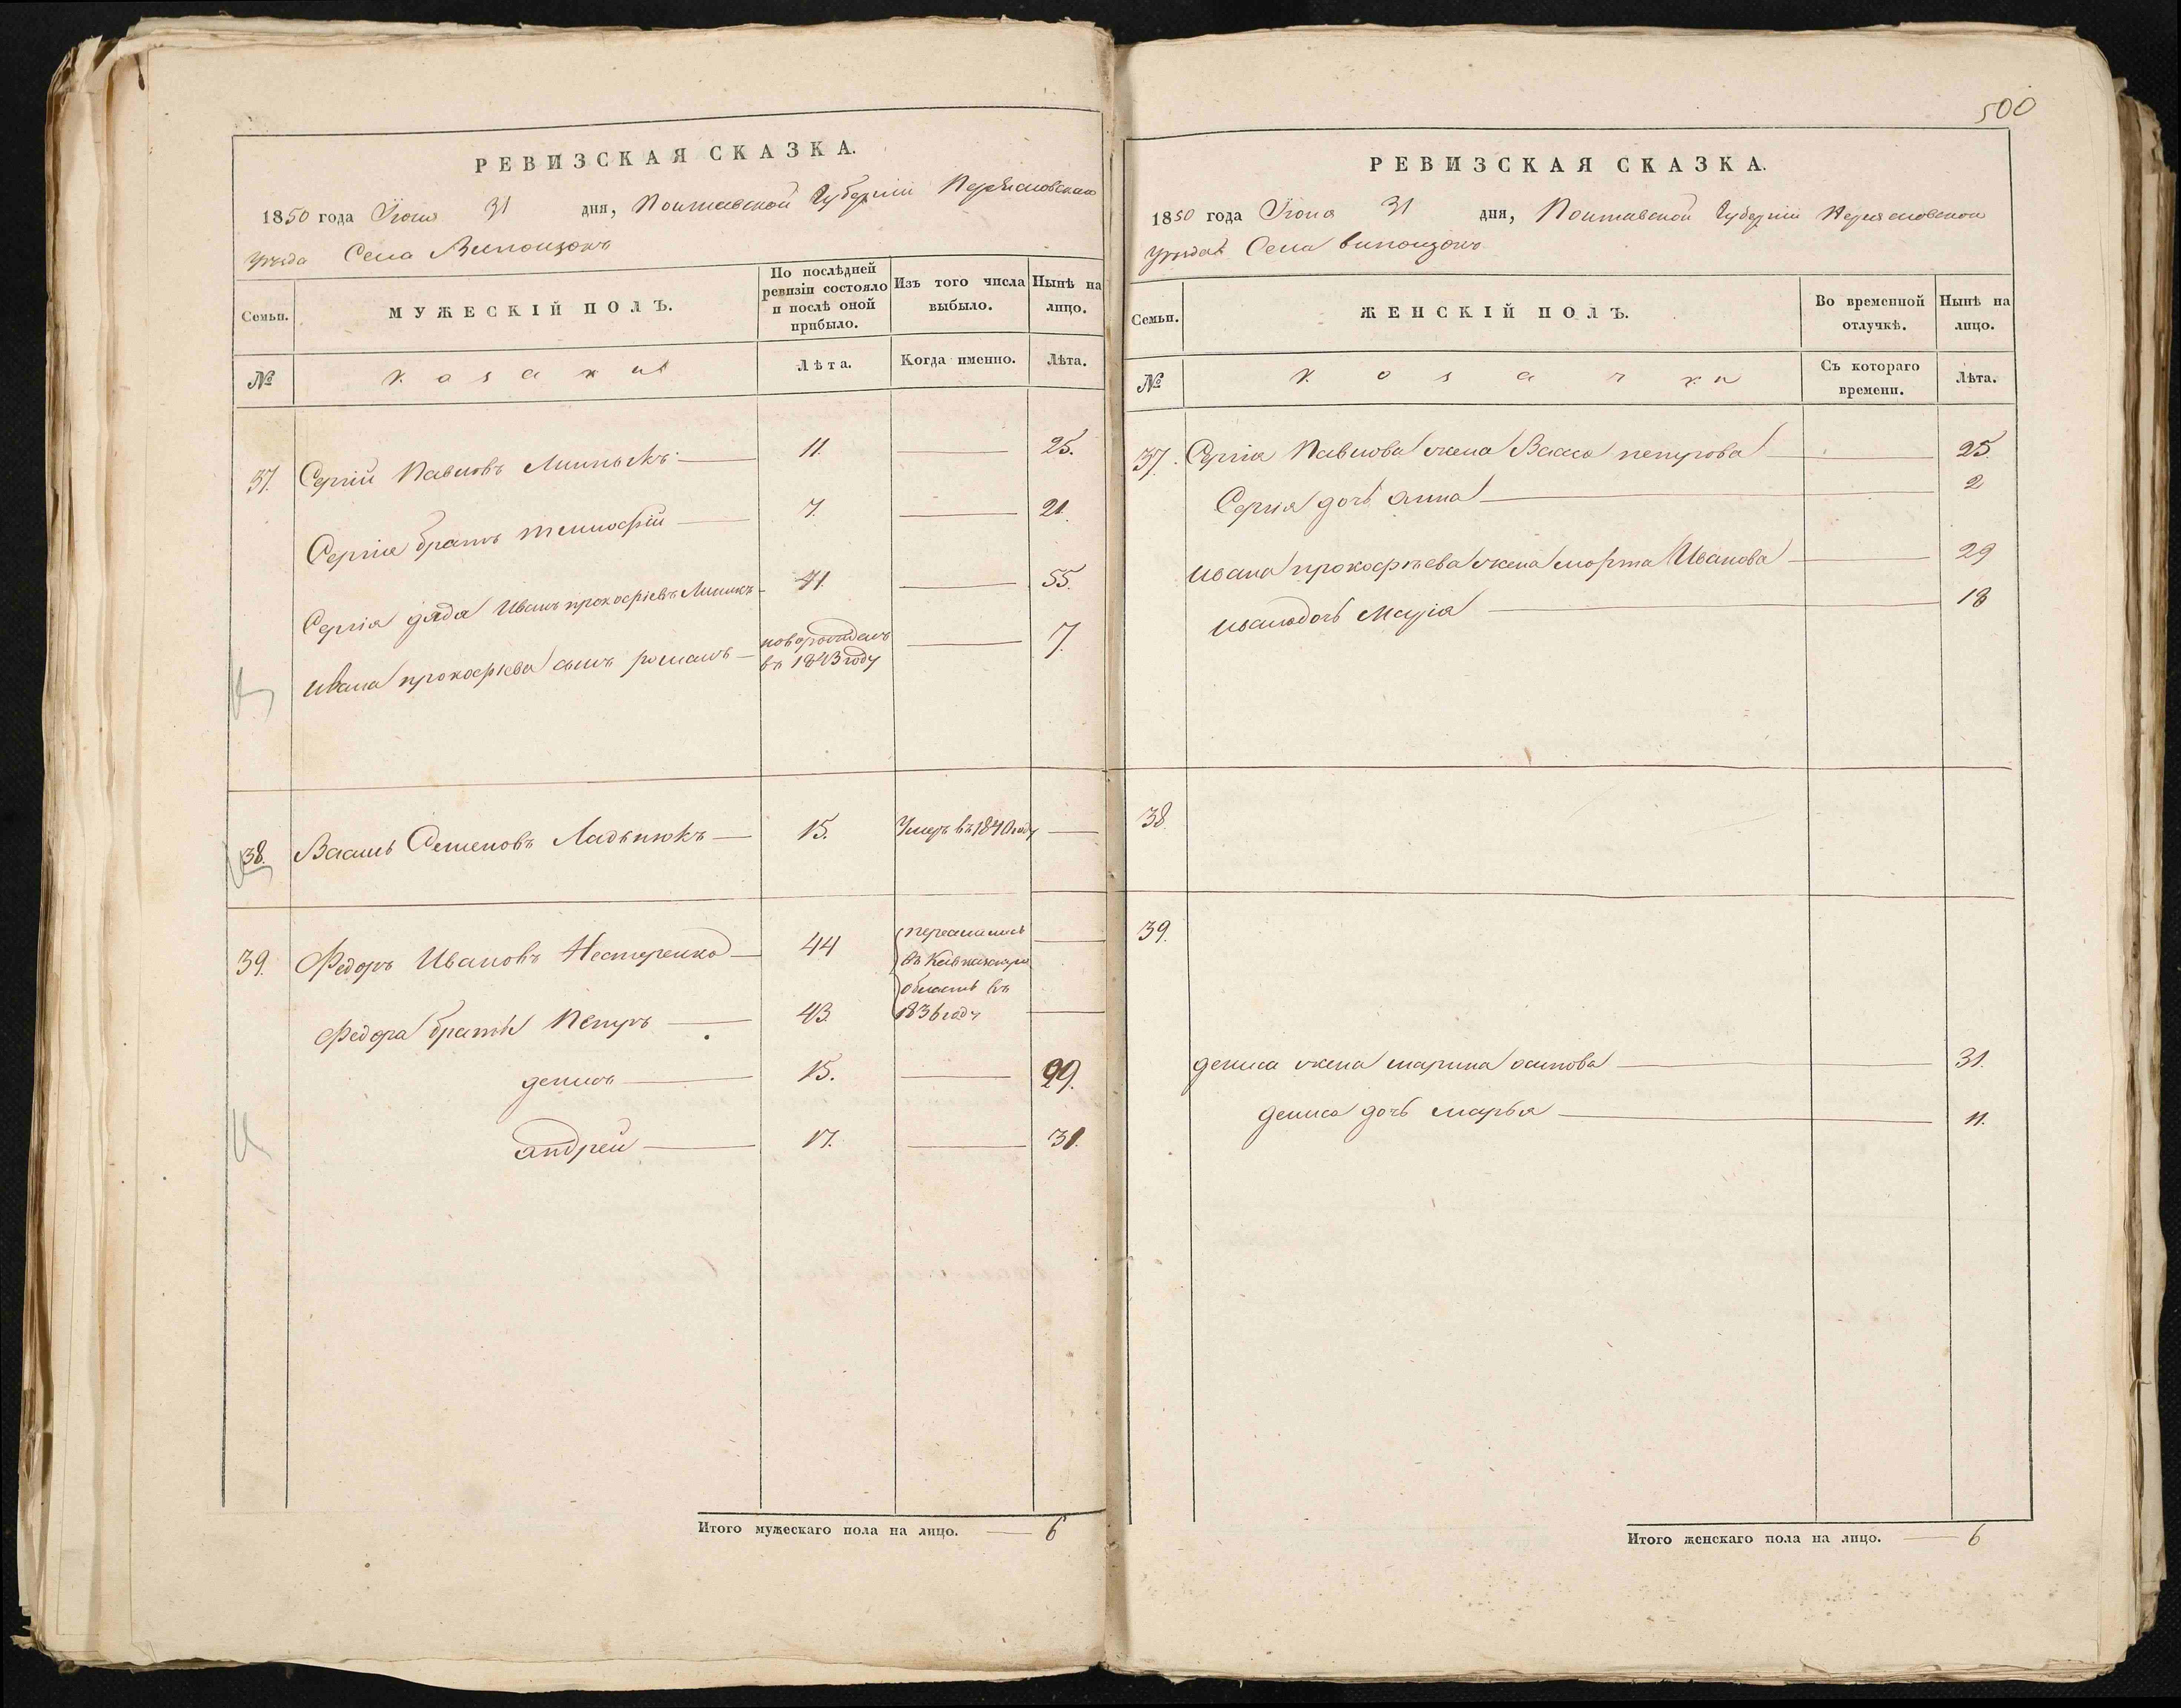 РЕВИЗСКАЯ СКАЗКА.
1850 года Июля 31 дня, Полтавской Губерніи Переяславскаго
Уѣзда Села Виползокъ
Семьи.
МУЖЕСКІЙ ПОЛЪ.
По послѣдней ревизіи состояло и послѣ оной прибыло.
Изъ того числа выбыло.
Нынѣ на лицо.
№
казаки
Лѣта.
Когда именно.
Лѣта.
37. Сергій Павловъ 11. 25.
Сергія братъ 7. 21.
Сергія дядя Иванъ прокофіевъ 41. 55.
Ивана прокофіева сынъ романъ новорожденъ въ 1843 году 7.
38. Василь Семеновъ Ладынюкъ 15. Умеръ въ 1840 году
39. Федоръ Ивановъ Нестеренко 44 переселились въ Кавказскую область въ 1836 году
Федора братья Петръ 43.
денисъ 15. 29.
андрей 17. 31.
Итого мужескаго пола на лицо. 6
500
РЕВИЗСКАЯ СКАЗКА.
1850 года Июля 31 дня, Полтавской Губерніи Переяславской
Уѣзда Села виползокъ
Семьи.
ЖЕНСКІЙ ПОЛЪ.
Во временной отлучкѣ.
Нынѣ на лицо.
№
козачки
Съ котораго времени.
Лѣта.
37. Сергія Павлова жена Васса петрова 25.
Сергія дочь анна 2
Ивана прокофіева жена марта Иванова 29
Ивана дочь Марія 18
38
39.
дениса жена марина осипова 31.
дениса дочь марья 11.
Итого женскаго пола на лицо. 6